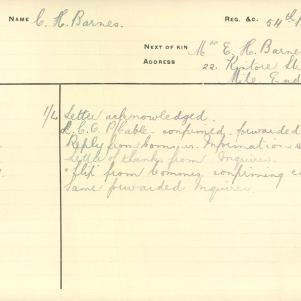 NAME C. H. Barnes. REG. &C. 54th
NEXT OF KIN Mrs E. H. Barne
ADDRESS 22. Kintore St
Mile End
1/4 Letter acknowledged.
Cable confirmed forwarded
Reply from Commrs. Information
Letter of thanks from Inquirer.
from Commrs confirming
same forwarded Inquirer.